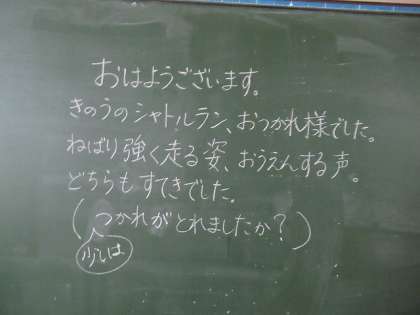 おはようございます。
きのうのシャトルラン、おつかれ様でした。
ねばり強く走る姿、おうえんする声。
どちらもすてきでした。
(つかれがとれましたか?)
少しは